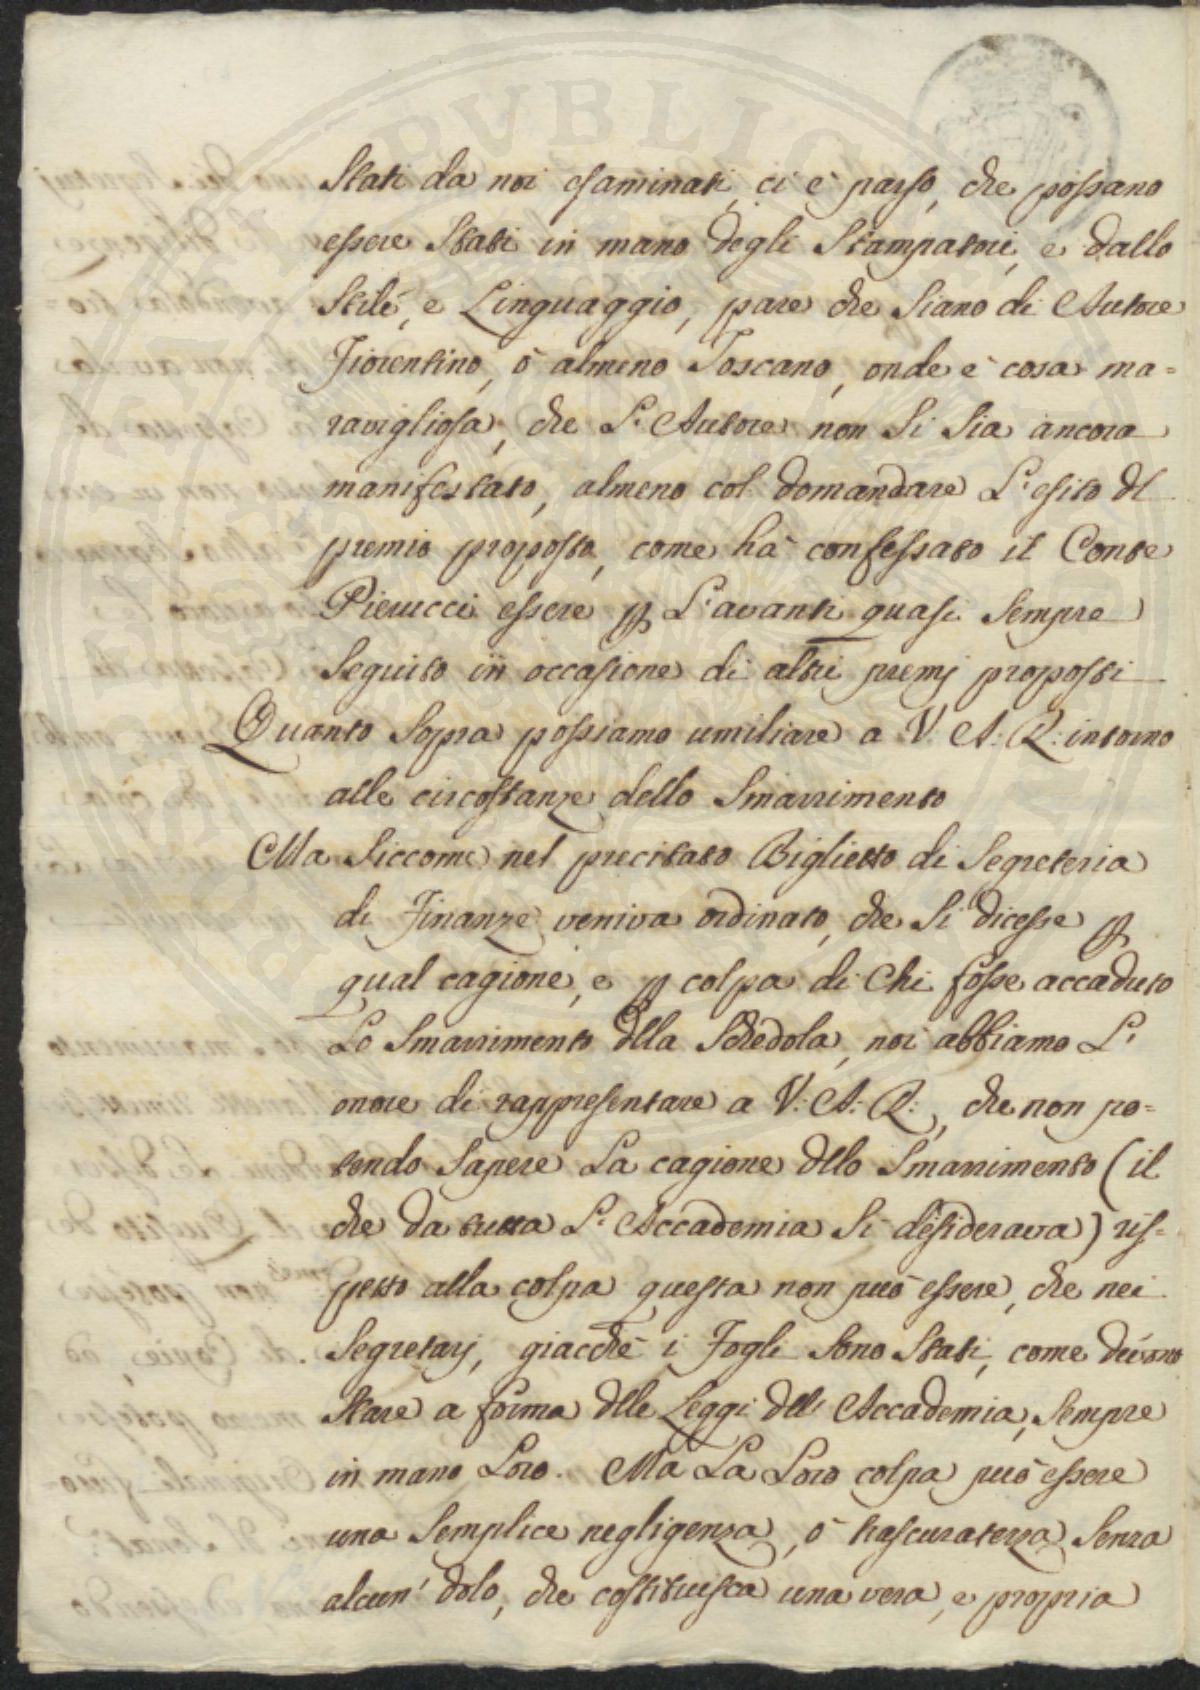 Stati da noi esaminati, ci è parso, che possano
essere stati in mano degli Stampatori, e dallo
Stile, e Linguaggio, pare che siano di Autore
Fiorentino, ò almeno Toscano, onde è cosa ma=
ravigliosa, che L'Autore non si sia ancora
manifestato, almeno col domandare L'esito dl
premio proposto, come hà confessato il Conte
Pierucci essere p L'avanti quasi sempre
seguito in occasione di altri premj proposti
Quanto sopra possiamo umiliare a V: A: R: intorno
alle circostanze dello Smarrimento
Ma siccome nel precitato Biglietto di Segreteria
di Finanze veniva ordinato, che si dicesse p
qual cagione, e p colpa di Chi fosse accaduto
Lo Smarrimento dlla Schedola, noi abbiamo L'
onore di rappresentare a V: A: R:, che non po=
tendo sapere La cagione dllo Smarrimento (il
che da tutta L'Accademia si desiderava) ris=
petto alla colpa questa non può essere, che nei
Segretarj, giacchè i Fogli sono stati, come devono
stare a forma dlle Leggi dell' Accademia, sempre
in mano Loro. Ma La Loro colpa può essere
una semplice negligenza, ò trascuratezza senza
alcun' dolo, che costituisca una vera, e propria
PVBLIC